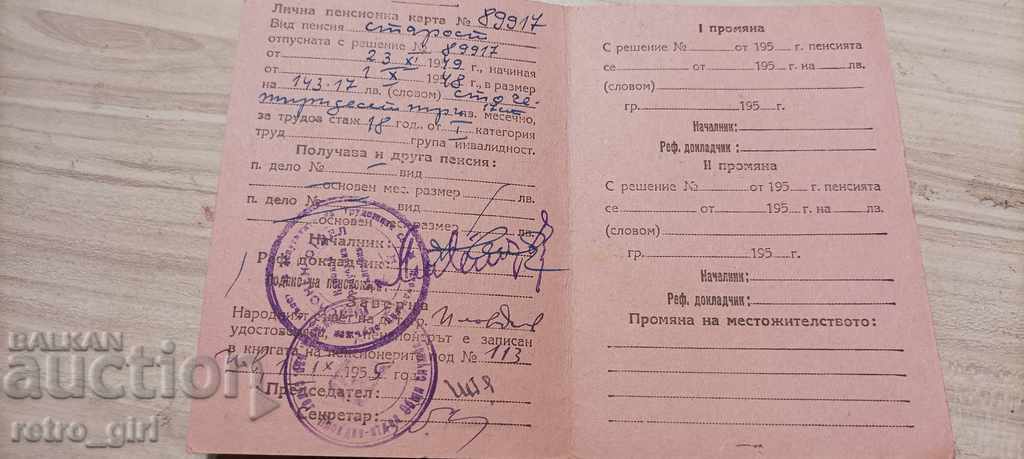 Лична пенсионка карта № 89917
Вид пенсия старост
отпусната с решение № 89917
от 23 XI 1949 г., начиная
от 1 X 1948 г., в размер
на 143.17 лв. (словом) сто че-
тиридесет три лв. месечно,
за трудов стаж 18 год., от I категория
труд група инвалидност.
Получава и друга пенсия:
п. дело № вид
основен мес. размер лв.
п. дело № вид
основен мес. размер лв.
Началник:
Реф. докладчик:
Подпис на пенсионера
Заверка
Народният съвет на гр. Пловдив
удостоверява, пенсионерът е записан
в книгата на пенсионерите под № 113
1 IX 195 год.
Председател:
Секретар:
I промяна
С решение № от 195 г. пенсията
се от 195 г. на лв.
(словом)
гр. 195 г.
Началник:
Реф. докладчик:
II промяна
С решение № от 195 г. пенсията
се от 195 г. на лв.
(словом)
гр. 195 г.
Началник:
Реф. докладчик:
Промяна на местожителството:
БАЛКАН
auction
retro_girl